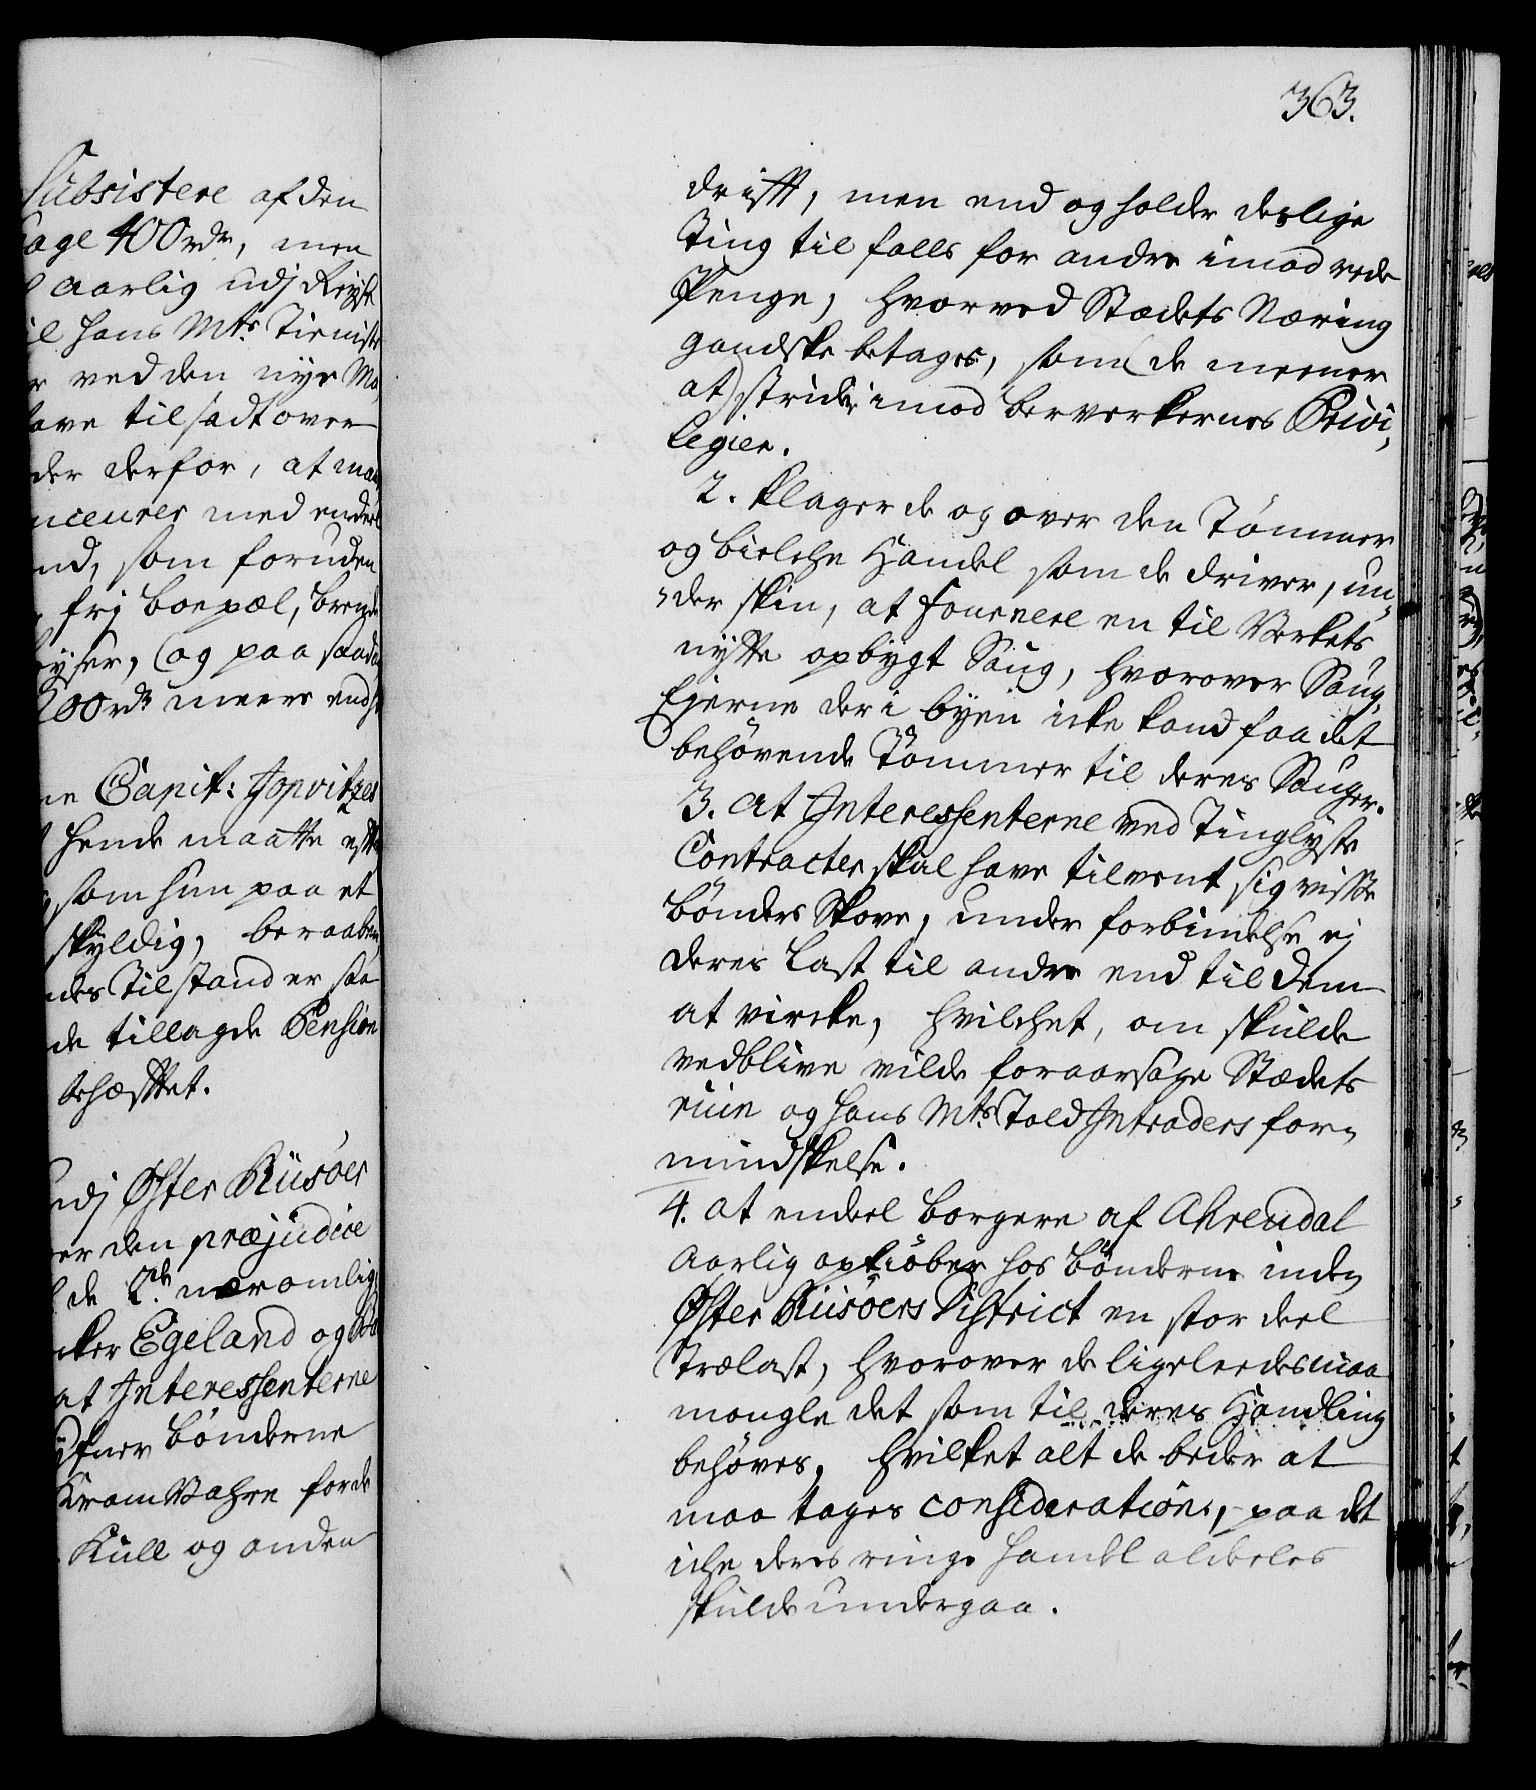 Subsistere af den
400 rdr, men
aarlig udj Reyse
hans Mts Tieniste
ved den nye Ma,
have tilsadt over
der derfor, at man
med endeel
som foruden
frj boepæl, brende
og paa saadan
00 rdr meere end
Capit: Jopvitzes
hende maatte efter
som hun paa et
skyldig, beraaber
Tilstand er saa
de tillagde Pension
behæfftet.
udj Øster Riisöer
er den præjudice
de 2de nemlig
Egeland og
at Interessenterne
bönderne
Kram Vahre for de
Kull og anden
363.
drifft, men end og holder deslige
Ting til falls for andre imod rede
Penge, hvorved Stædets Næring
gandske betages, som de meener
at strider imod berverkernes Privi,
legier.
2. Klager de og over den Tömmer
og bielche Handel som de driver, un,,
,,der skin, at fournere en til Verkets
nytte opbygt Saug, hvorover Saug,
Ejerne der i byen icke kand faa det
behövende Tömmer til deres Sauger.
3. At Interessenterne ved Tinglyste
Contracter skal have tilvent sig visse
bönders Skove, under forbindelse ej
deres last til andre end til dem
at vircke, hvilchet, om skulde
vedblive vilde foraarsage Stædets
ruin og hans Mts Told Intraders for,,
mindskelse.
4. At endeel borgere af Ahrendal
aarlig opkiöber hos bönderne inden
Øster Riisöers District en stor deel
Trælast, hvorover de ligeleedes maa
mangle det som til deres Handling
behöves, hvilket alt de beder at
maa tages consideration, paa det
iche deres ringe handel aldeeles
skulde undergaa.